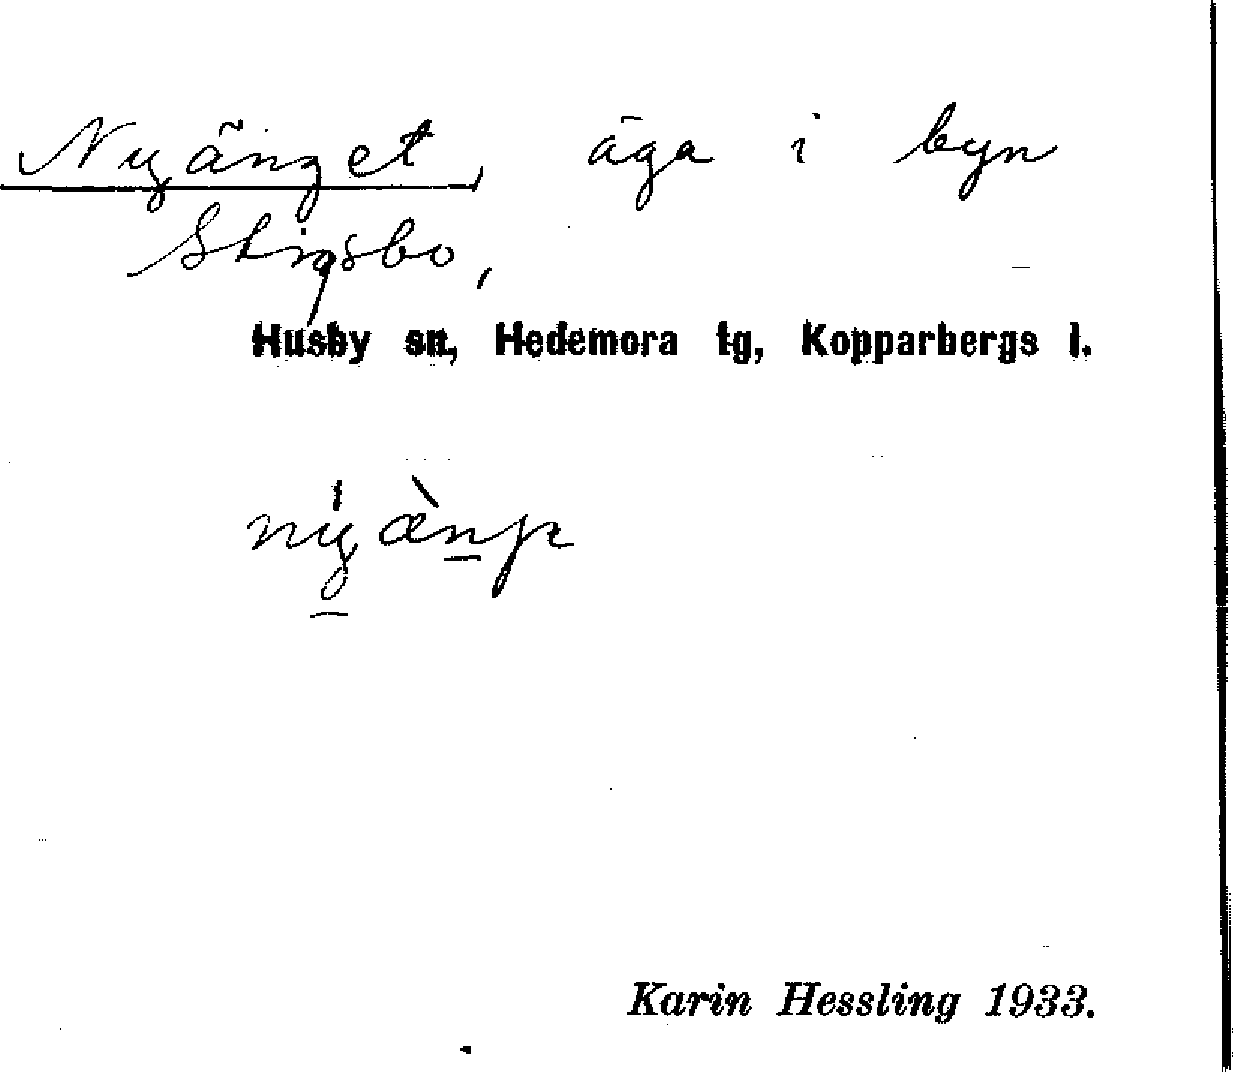 Nyänget, äga i byn
Stigsbo,
Husby sn, Hedemora tg, Kopparbergs l.
Karin Hessling 1933.